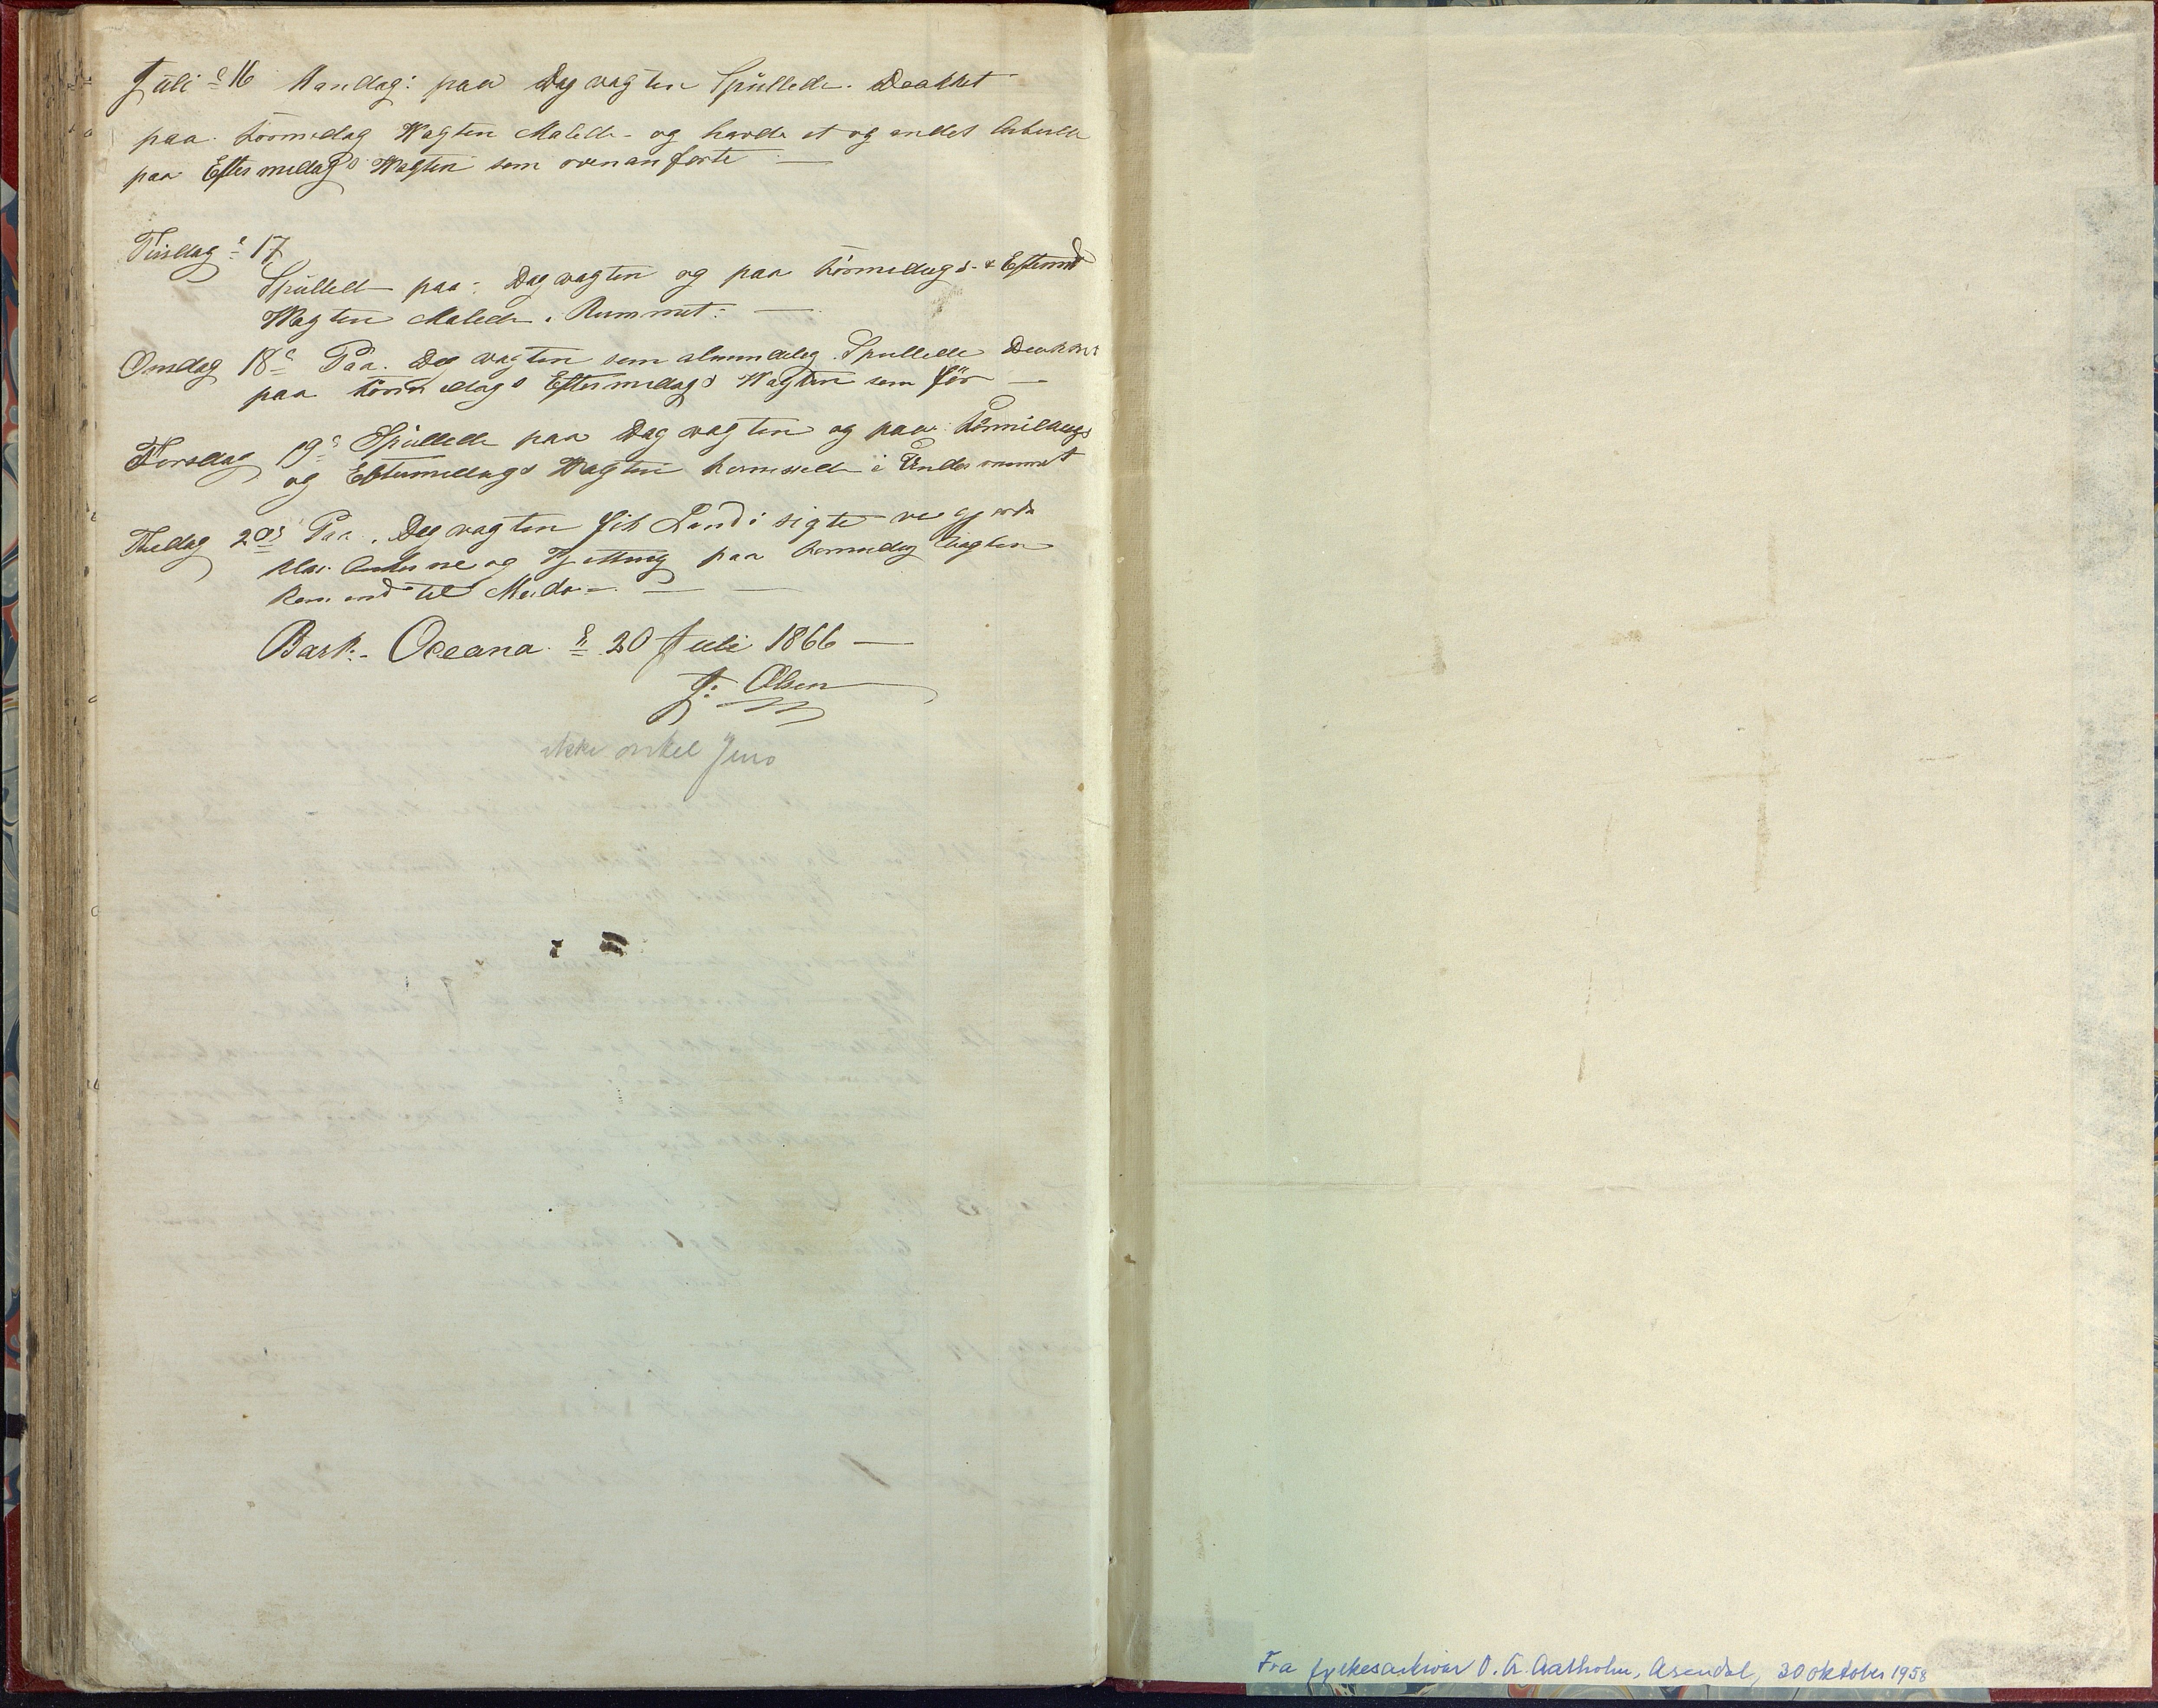 Juli d 16 Mandag: paa Dagvagten Spullede. Deakket
paa formedag Wagten Malede - og havde et og andet Arbeide
paa Eftermedags Wagten som ovenanførte —
Tirsdag d 17
Spullede paa: Dagvagten og paa formedags- & Eftermd
Wagten Malede i Rummet: —
Onsdag 18d Paa. Dagvagten som almindelig. Spullede Deakket
paa formedags Eftermedags Wagten som för —
Torsdag 19d Spullede paa Dagvagten og paa formidags
og Eftermedags Wagten i Underrummet
Fredag 20d Paa. Dagvagten fik Land i sigte vi gjorde
klar Ankerne og paa formedag Vagten
kom ind til
Bark. Oceana. d 20 Juli 1866 —
J: Olsen
ikke onkel Jens
Fra fylkesarkivar O. A. Aasholm, Arendal, 30 oktober 1958